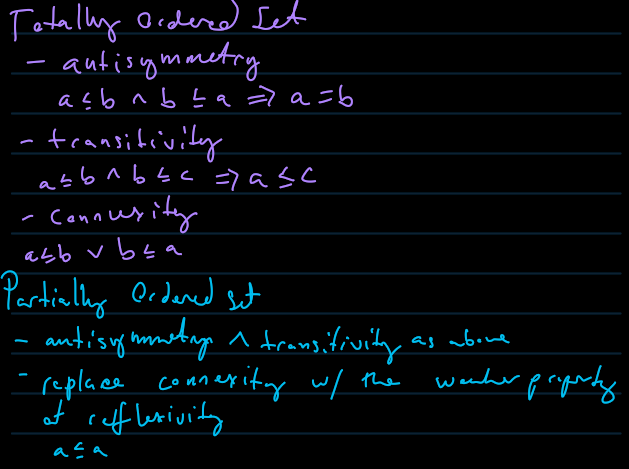 Totally Ordered Set
- antisymmetry
a ≤ b ∧ b ≤ a ⇒ a = b
- transitivity
a ≤ b ∧ b ≤ c ⇒ a ≤ c
- connexity
a ≤ b ∨ b ≤ a
Partially Ordered set
- antisymmetry ∧ transitivity as above
- replace connexity w/ the weaker property
of reflexivity
a ≤ a